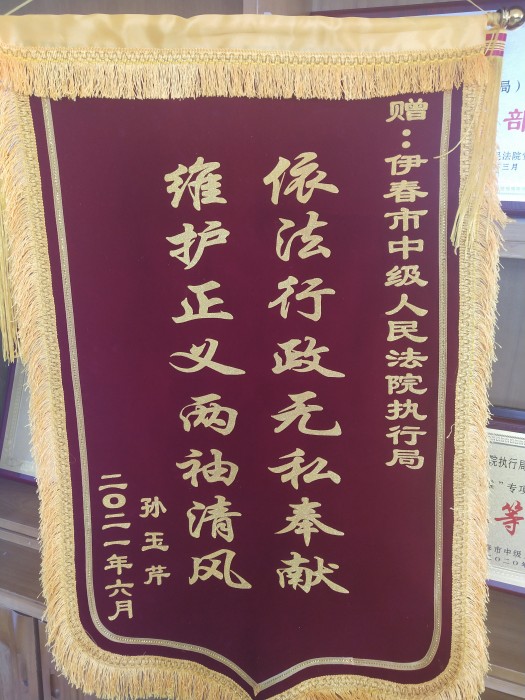 赠：伊春市中级人民法院执行局
依法行政无私奉献
维护正义两袖清风
孙玉芹
二〇二一年六月
局）
部
民法院
三月
院执行局
”专项
等
春市中级
二〇二〇年